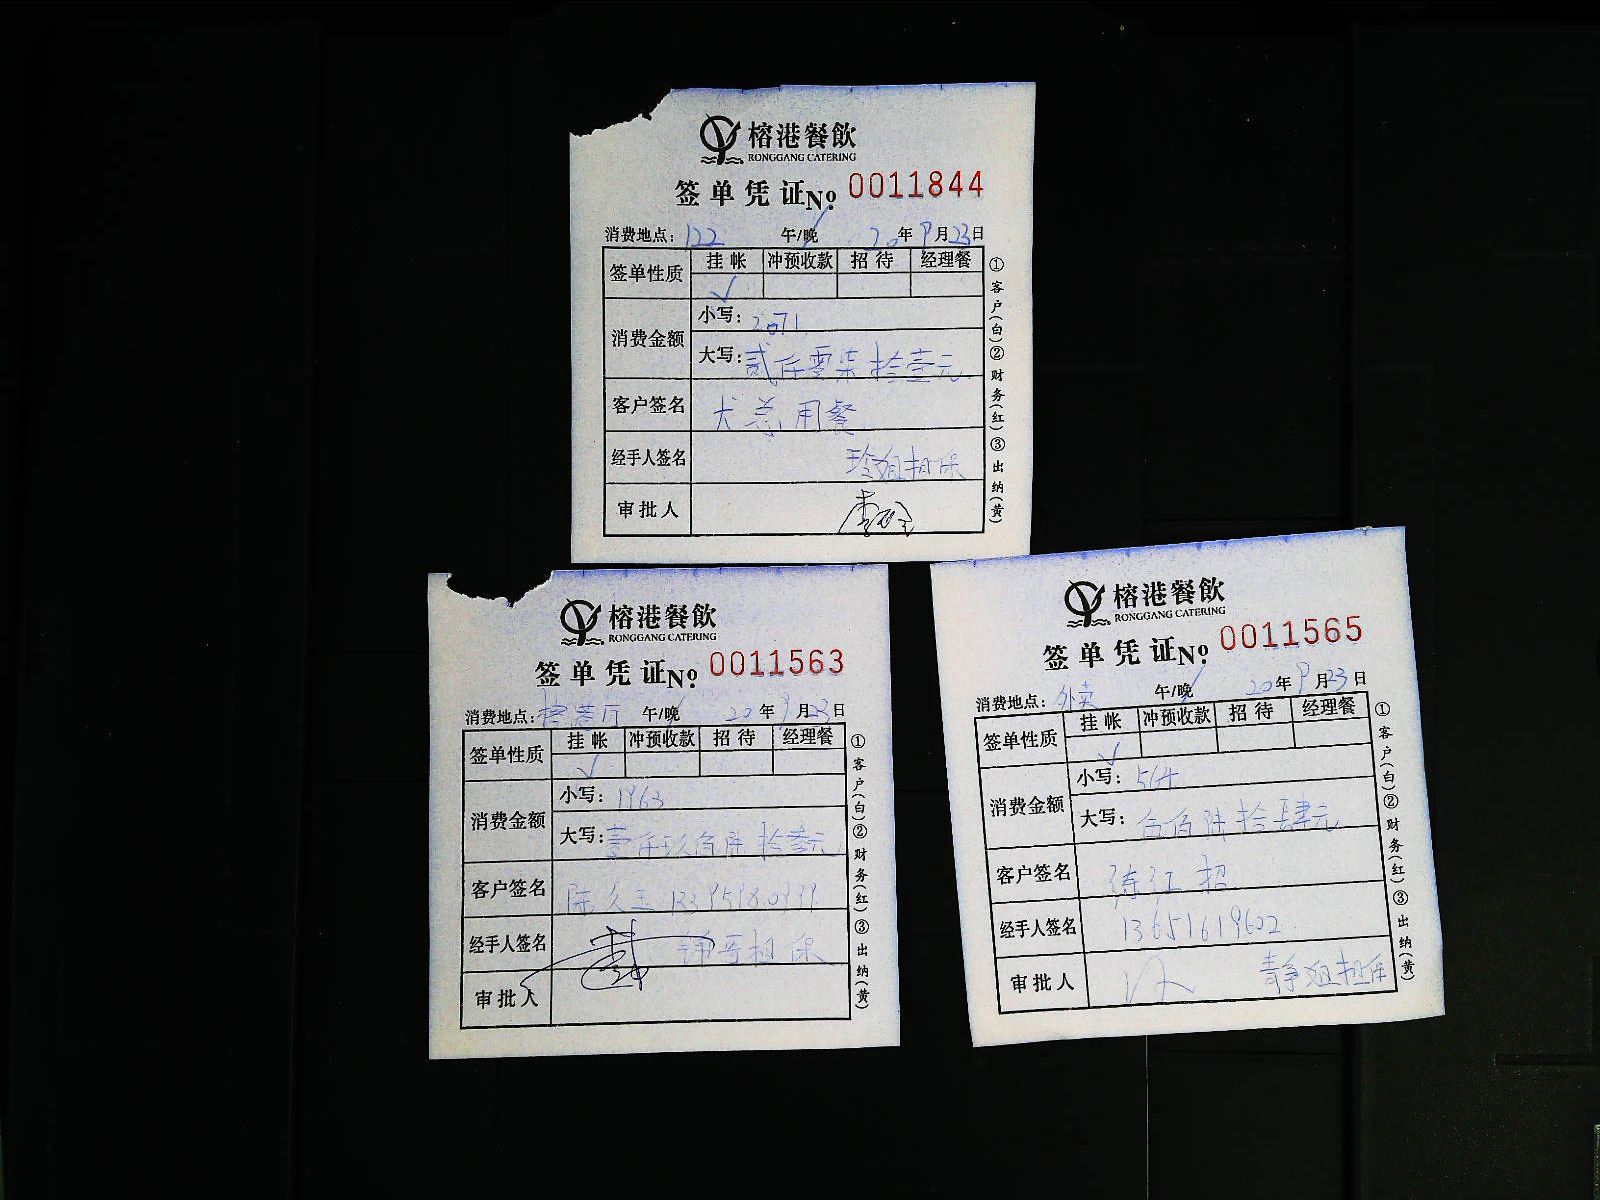 榕港餐飲
RONGGANG CATERING
签单凭证No. 0011844
消费地点：122 午/晚 20年9月23日
签单性质 挂帐 冲预收款 招待 经理餐
✓
消费金额 小写：2071
大写：贰仟零柒拾壹元
客户签名 犬总用餐
经手人签名 玲姐担保
审批人
①客户(白)②财务(红)③出纳(黄)
榕港餐飲
RONGGANG CATERING
签单凭证No. 0011563
消费地点：榕港厅 午/晚 20年9月23日
签单性质 挂帐 冲预收款 招待 经理餐
✓
消费金额 小写：1963
大写：壹仟玖佰陆拾叁元
客户签名 陈久玉
经手人签名 哥担保
审批人
①客户(白)②财务(红)③出纳(黄)
榕港餐飲
RONGGANG CATERING
签单凭证No. 0011565
消费地点：外卖 午/晚 20年9月23日
签单性质 挂帐 冲预收款 招待 经理餐
✓
消费金额 小写：564
大写：伍佰陆拾肆元
客户签名 江招
经手人签名 13651619602
审批人 静姐担保
①客户(白)②财务(红)③出纳(黄)